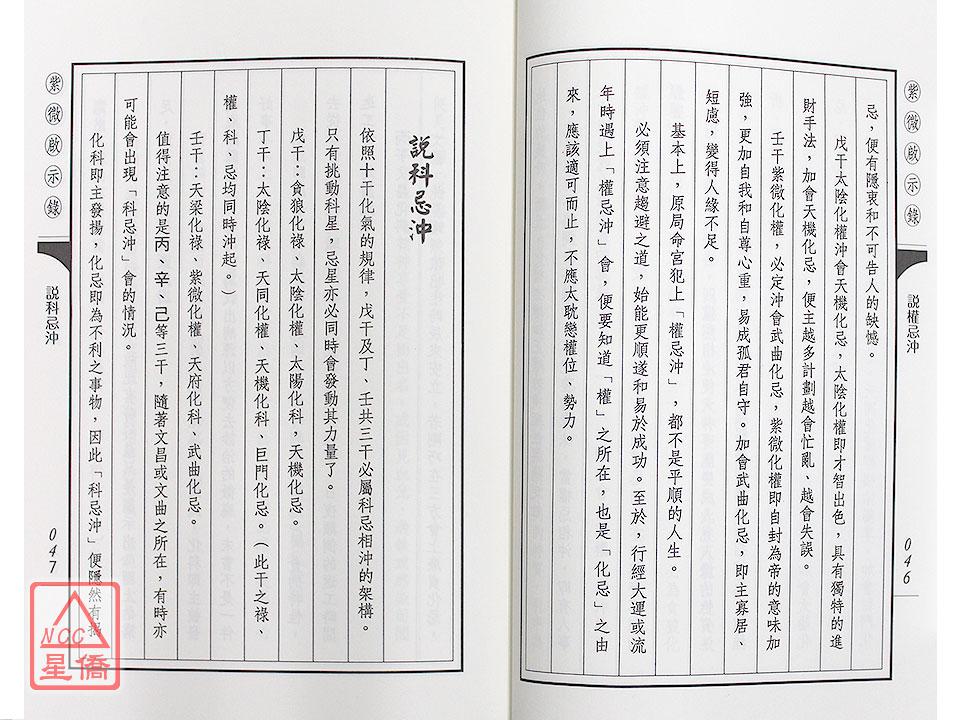 紫微啟示錄
說權忌沖
046
忌，便有隱衷和不可告人的缺憾。
戊干太陰化權沖會天機化忌，太陰化權即才智出色，具有獨特的進
財手法，加會天機化忌，便主越多計劃越會忙亂、越會失誤。
壬干紫微化權，必定沖會武曲化忌，紫微化權即自封為帝的意味加
強，更加自我和自尊心重，易成孤君自守。加會武曲化忌，即主寡居、
短慮，變得人緣不足。
基本上，原局命宮犯上「權忌沖」，都不是平順的人生。
必須注意趨避之道，始能更順遂和易於成功。至於，行經大運或流
年時遇上「權忌沖」會，便要知道「權」之所在，也是「化忌」之由
來，應該適可而止，不應太耽戀權位、勢力。
說科忌沖
依照十干化氣的規律，戊干及丁、壬共三干必屬科忌相沖的架構。
只有挑動科星，忌星亦必同時會發動其力量了。
戊干：貪狼化祿、太陰化權、太陽化科，天機化忌。
丁干：太陰化祿、天同化權、天機化科、巨門化忌。（此干之祿、
權、科、忌均同時沖起。）
壬干：天梁化祿、紫微化權、天府化科、武曲化忌。
值得注意的是丙、辛、己等三干，隨著文昌或文曲之所在，有時亦
可能會出現「科忌沖」會的情況。
化科即主發揚，化忌即為不利之事物，因此「科忌沖」便隱然有揭
紫微啟示錄
說科忌沖
047
NCC
星僑